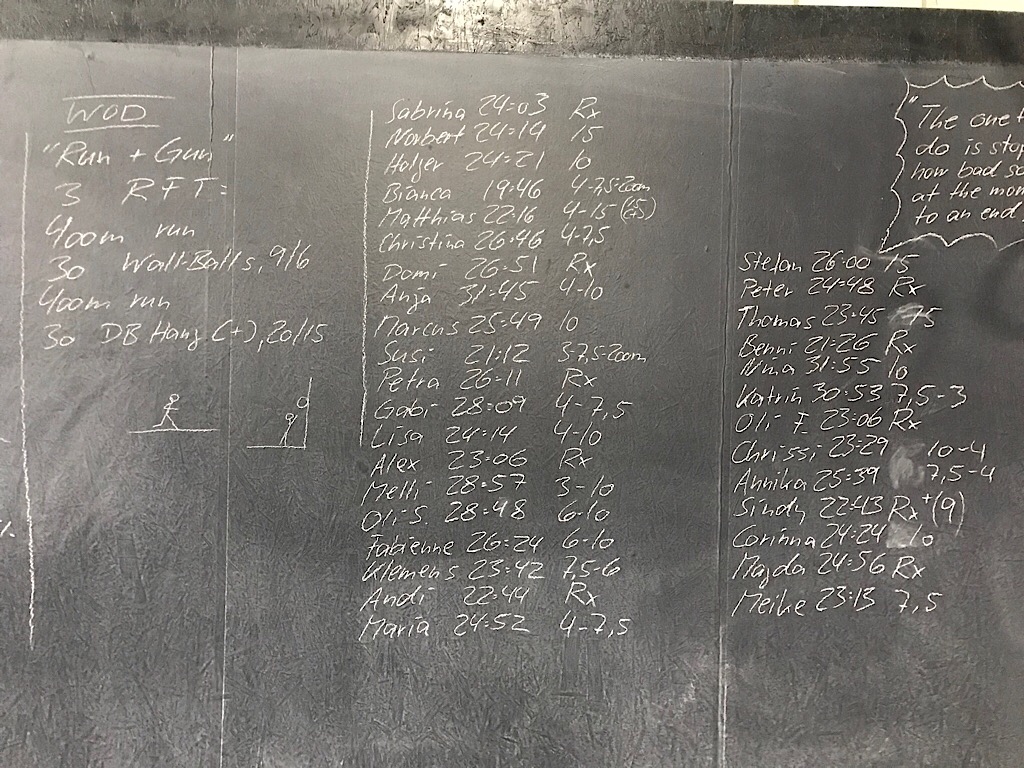 WOD
"Run + Gun"
3 RFT:
400m run
30 Wall-Balls, 9/6
400m run
30 DB Hang (+), 20/15
Sabrina 24:03 Rx
Norbert 24:19 15
Holger 24:21 10
Bianca 19:46 4-7,5-200m
Matthias 22:16 4-15
Christina 26:46 4-7,5
Domi 26:51 Rx
Anja 31:45 4-10
Marcus 25:49 10
Susi 21:12 3-7,5-200m
Petra 26:11 Rx
Gabi 28:09 4-7,5
Lisa 24:14 4-10
Alex 23:06 Rx
Melli 28:57 3-10
Oli S. 28:48 6-10
Fabienne 26:24 6-10
Klemens 23:42 7,5-6
Andi 22:44 Rx
Maria 24:52 4-7,5
"The one t
do is stop
how bad so
at the mom
to an end.
Stefan 26:00 15
Peter 24:48 Rx
Thomas 23:45 15
Benni 21:26 Rx
Nina 31:55 10
Katrin 30:53 7,5-3
Oli F. 23:06 Rx
Chrissi 23:29 10-4
Annika 25:39 7,5-4
Sindy 22:43 Rx+(9)
Corinna 24:24 10
Majda 24:56 Rx
Meike 23:13 7,5